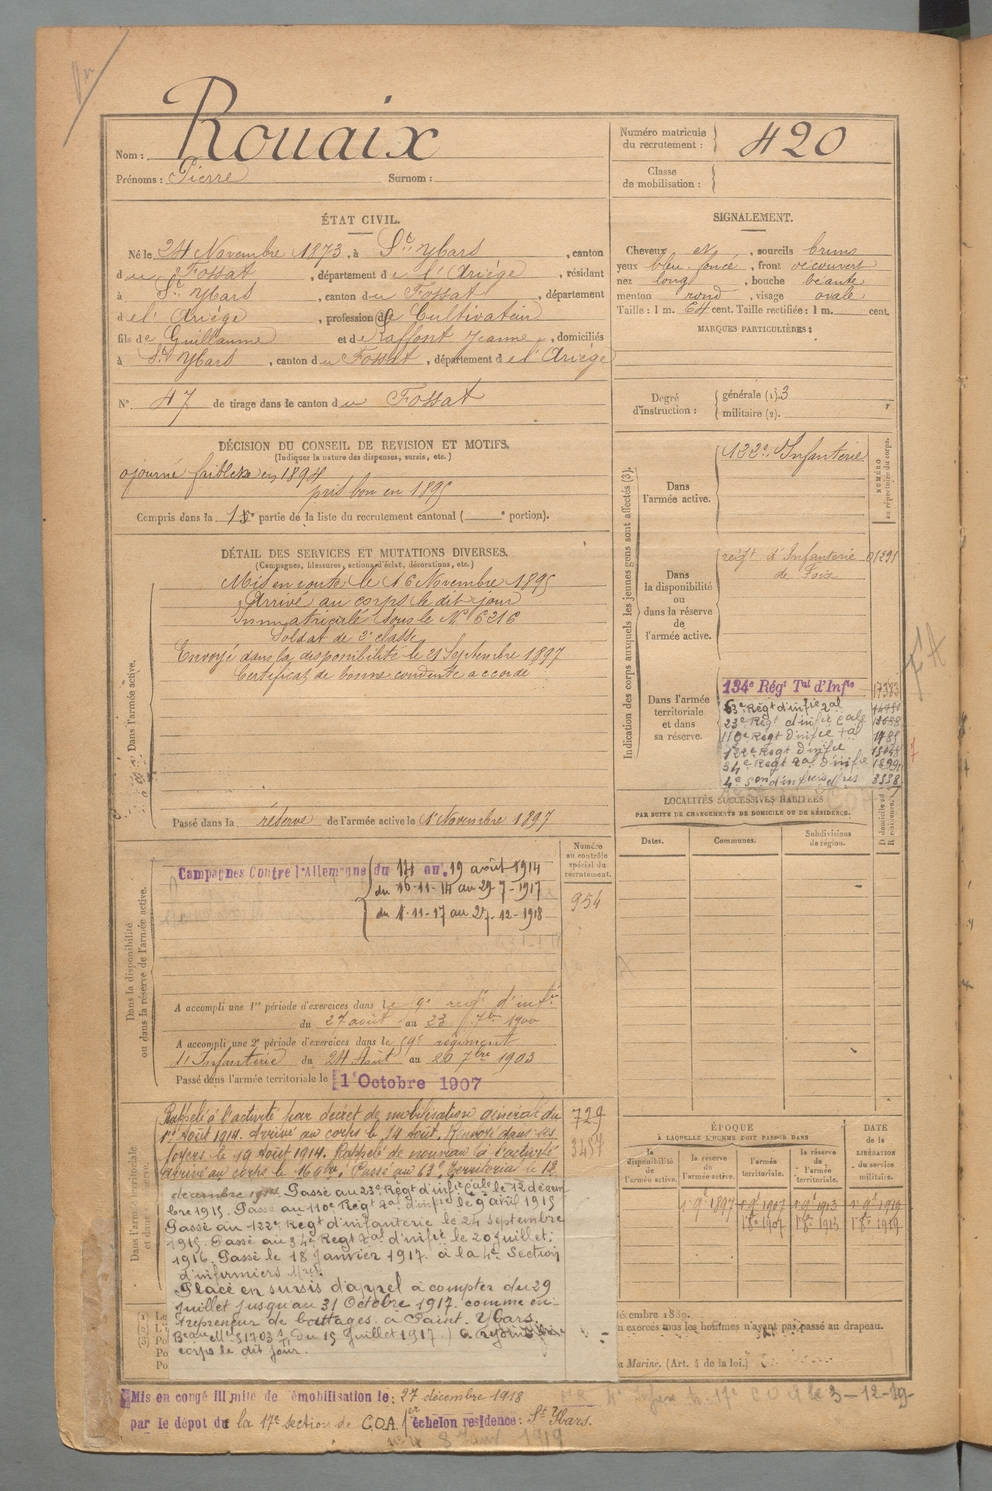 Rouaix
Nom :
Prénoms : Pierre Surnom :
Numéro matricule
du recrutement : 420
Classe
de mobilisation :
ÉTAT CIVIL.
Né le 24 Novembre 1873, à St Ybars, canton
du Fossat, département de l'Ariège, résidant
à St Ybars, canton du Fossat, département
de l'Ariège, profession de Cultivateur
fils de Guillaume et de Laffont Jeanne, domiciliés
à St Ybars, canton du Fossat, département de l'Ariège
N° 47 de tirage dans le canton du Fossat
SIGNALEMENT.
Cheveux et, sourcils bruns
yeux bleu foncé, front découvert
nez long, bouche béante
menton rond, visage ovale
Taille : 1 m. 64 cent. Taille rectifiée : 1 m. cent.
MARQUES PARTICULIÈRES :
Degré
d'instruction :
générale (1). 3
militaire (2).
DÉCISION DU CONSEIL DE REVISION ET MOTIFS.
(Indiquer la nature des dispenses, sursis, etc.)
ajourné faiblesse en 1894
pris bon en 1895
Compris dans la 1e partie de la liste du recrutement cantonal ( e portion).
DÉTAIL DES SERVICES ET MUTATIONS DIVERSES.
(Campagnes, blessures, actions d'éclat, décorations, etc.)
Dans l'armée active.
Mis en route le 16 Novembre 1895
Arrivé au corps le dit jour
Immatriculé sous le N° 6216
Soldat de 2e classe
Envoyé dans la disponibilité le 21 Septembre 1897
Certificat de bonne conduite accordé
Passé dans la réserve de l'armée active le 1er Novembre 1897
Indication des corps auxquels les jeunes gens sont affectés (3).
NUMÉRO
au répertoire du corps.
Dans
l'armée active.
133e Infanterie
Dans
la disponibilité
ou
dans la réserve
de
l'armée active.
régt d'Infanterie
de Foix
01291
Dans l'armée
territoriale
et dans
sa réserve.
134e Régt Tal d'Infie 17383
63e Régt d'infie Tal
23e Régt d'infie Cale
110e Regt d'infie Tal
122e Regt d'infie
34e Regt Tal d'infie
4e Son d'infiers 3558
LOCALITÉS SUCCESSIVES HABITÉES
PAR SUITE DE CHANGEMENTS DE DOMICILE OU DE RÉSIDENCE.
Dates. Communes. Subdivisions
de région.
Dans la disponibilité
ou dans la réserve de l'armée active.
Numéro
au contrôle
spécial du
recrutement.
954
Campagnes Contre l'Allemagne du 14 au 19 août 1914
du 16-11-14 au 29-7-1917
du 1-11-17 au 27-12-1918
A accompli une 1re période d'exercices dans le 9e régt d'infie
du 27 août au 23 7bre 1900
A accompli une 2e période d'exercices dans le 59e régiment
d'Infanterie du 24 Août au 20 7bre 1903
Passé dans l'armée territoriale le 1er Octobre 1907
Dans l'armée territoriale
et dans sa réserve.
729
3487
Rappelé à l'activité par décret de mobilisation générale du
1er Août 1914. Arrivé au corps le 14 Août. Renvoyé dans ses
foyers le 19 Août 1914. Rappelé de nouveau à l'activité
arrivé au corps le 16 9bre. Passé au 63e Territorial le 12
décembre 1914. Passé au 23e Regt d'infie Cale le 12 décem
bre 1915. Passé au 110e Regt Tal d'infie le 9 avril 1915
Passé au 122e Regt d'infanterie le 24 septembre
1915. Passé au 34e Regt Tal d'infie le 20 juillet
1916. Passé le 18 Janvier 1917 à la 4e Section
d'infirmiers Mres.
Placé en sursis d'appel à compter du 29
Juillet jusqu'au 31 Octobre 1917 comme en-
trepreneur de battages à Saint Ybars.
du 15 Juillet 1917) a rejoint son
corps le dit jour.
ÉPOQUE
À LAQUELLE L'HOMME DOIT PASSER DANS
la
disponibilité
de
l'armée active.
la réserve
de
l'armée active.
l'armée
territoriale.
la réserve
de
l'armée
territoriale.
DATE
de la
LIBÉRATION
du service
militaire.
1er 9e 1897 1er 9e 1907 1er 9e 1913 1er 9e 1919
1er 8e 1907 1er 8e 1913 1er 8e 1919
décembre 1889.
n exercés tous les hommes n'ayant pas passé au drapeau.
la Marine. (Art. 4 de la loi.)
Mis en congé illimité de démobilisation le : 27 décembre 1918
par le dépot de la 17e section de C.O.A. 1er échelon residence : St Ybars.
17e C O A le 3-12-19
8 Janv 1919